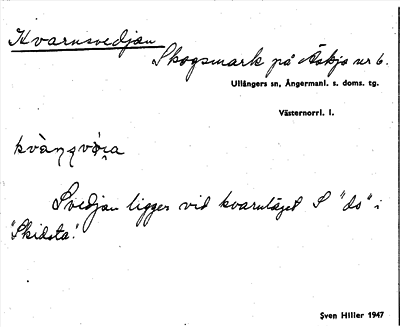 Kvarnsvedjan
Skogsmark på Äskja nr 6.
Ullångers sn, Ångermanl. s. doms. tg.
Västernorrl. l.
Svedjan ligger vid kvarnläget S "ds" i
"Skidsta".
Sven Hiller 1947